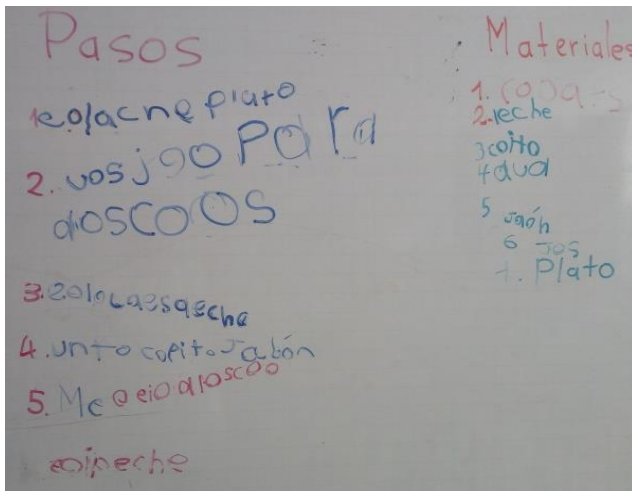 Pasos
1.colacne plato
2. vos jgo para
doscoos
3.colocaesqeche
4.unto copito Jabón
5. Me
eoipeche
Materiales
1. copas
2.leche
3 coito
4 aua
5 Jaón
6 Jos
7. Plato